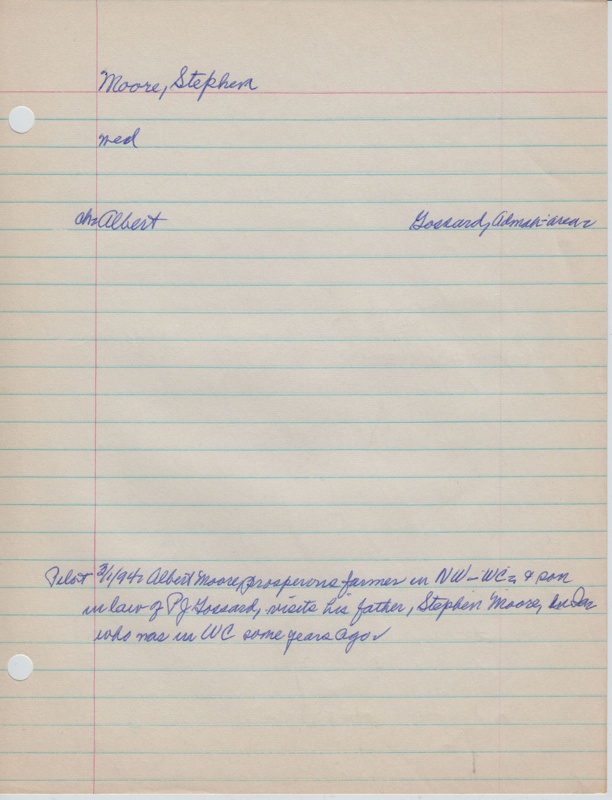 Moore, Stephen
med
ch- Albert Gossard, Admah-area-
Pilot 3/1/94- Albert Moore, prosperous farmer in NW-WC- & son
in law of P J Gossard, visits his father, Stephen Moore, in
who was in WC some years ago